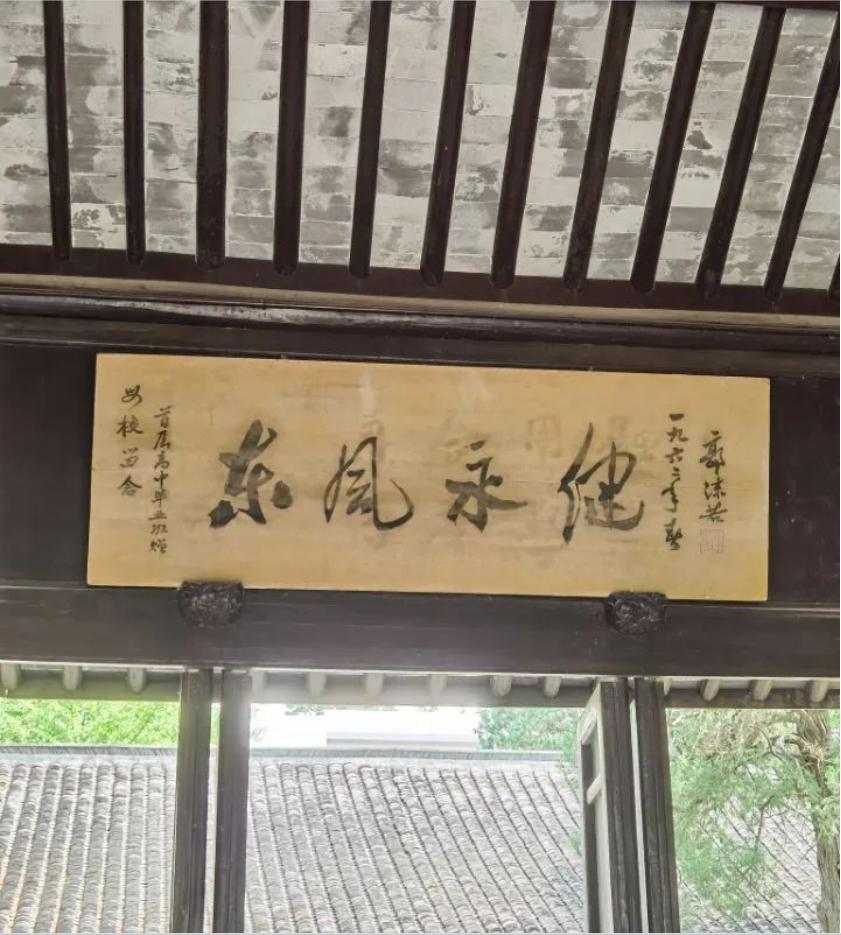 母校留念
首届高中毕业班赠
东风永健
一九六二年春
郭沫若